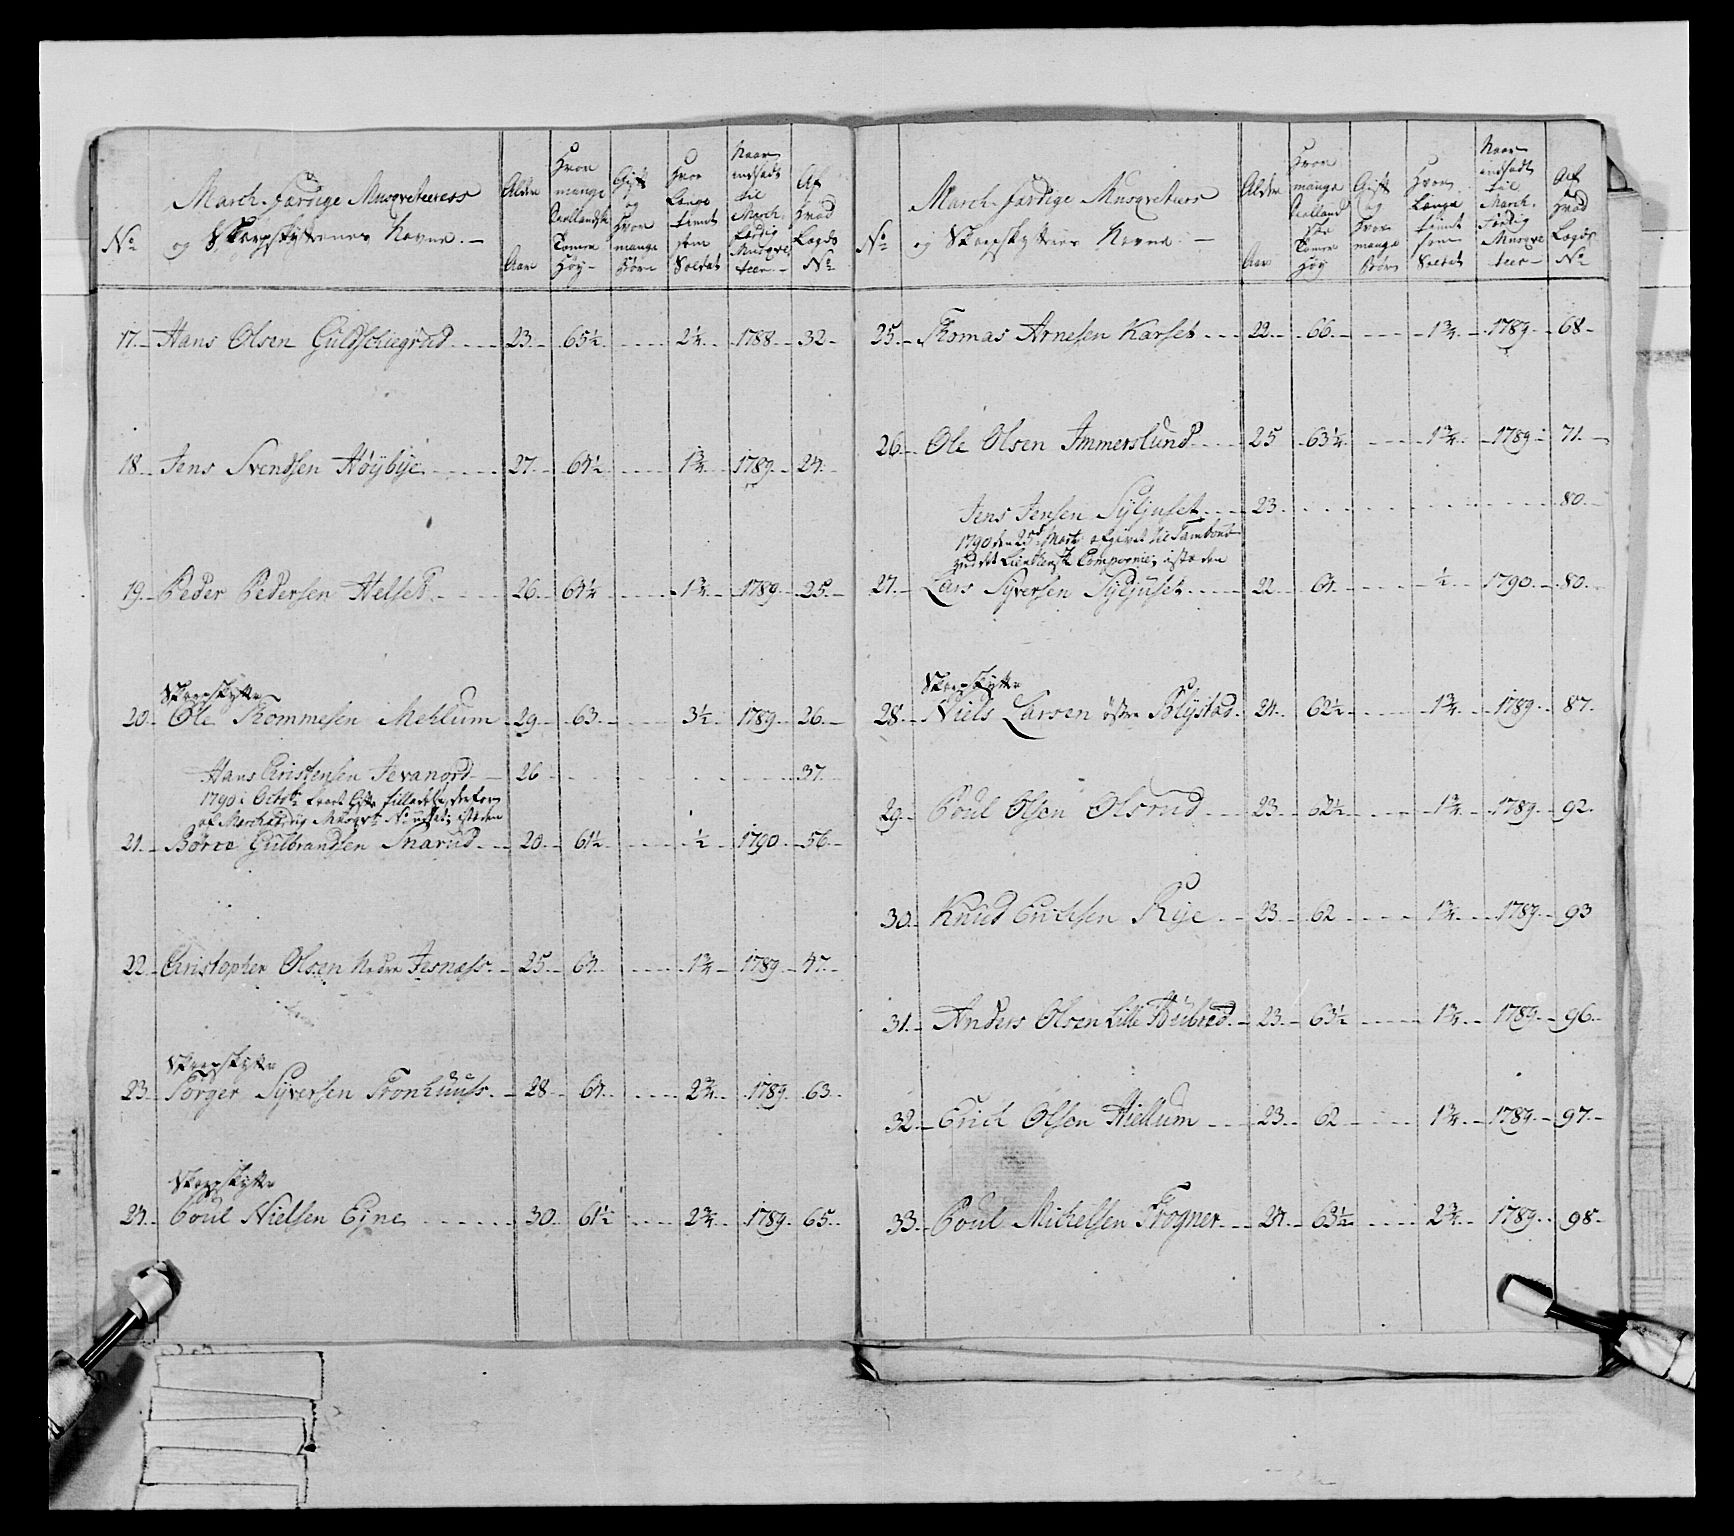 No
March færdige Musqveteerers
og Skarpskytternes Navne. —
Alder
Aar
Hvor
mange
Siellandske
Tommer
Høy —
Gift
og
Hvor
mange
Børn
Hvor
Længe
tient
som
Soldat
Naar
indsadt
til
March
færdig
Musqve
teer —
Af
hvad
Lægds
No
17. Hans Olsen Guldschiegrud 23. 65½ 2¼ 1788. 32.
18. Jens Svendsen Høybÿe 27. 64½ 1¾ 1789. 24.
19. Peder Pedersen Helset 26. 64¼ 1¾ 1789. 25.
Skarpskytte
20. Ole Thommesen Mehlum 29. 63. 3½ 1789. 26.
Hans Christensen Jevanord 26 37.
1790 i Octobr
af March færdig Musqvt No isteden
21. Børre Gulbrandsen Snarud 20. 61½ ½ 1790. 56.
22. Christopher Olsen Nedre Jesnæss 25. 64. 1¾ 1789. 47.
Skarpskytte
23. Torger Syversen Tronhuuss 28. 64. 2¾ 1789. 63.
Skarpskytte
24. Poul Nielsen Ejne 30. 61½ 2¾ 1789. 65.
No
March færdige Musqveteers
og Skarpskytters Navne. —
Alder
Aar
Hvor
mange
Sielland
ske
Tommer
Høy
Gift
og
Hvor
mange
Børn
Hvor
Længe
tient
som
Soldat
Naar
indsadt
til
March
færdig
Musqve
teer —
Af
hvad
Lægds
No
25. Thomas Arnesen Karset 22. 66. 1¾ 1789. 68.
26. Ole Olsen Immerslund 25 63¼ 1¾ 1789. 71.
Jens Jensen Syljuset 23. 80.
1790 den 25de Marti afgivet til Tambour
ved det Compagnie, isteden
27. Lars Syversen Syljuset 22. 64. ½ 1790. 80.
Skarpskytte
28. Niels Larsen østre Blystad 24. 62½ 1¾ 1789. 87.
29. Poul Olsen Olsrud 23. 62½ 1¾ 1789. 92.
30. Knud Erichsen Rye 23. 62 1¾ 1789. 93
31. Anders Olsen Lille 23. 63½ 1¾ 1789. 96.
32. Erich Olsen Hiellum 23. 62 1¾ 1789. 97.
33. Poul Michelsen Frogner 24. 63½ 2¾ 1789. 98.